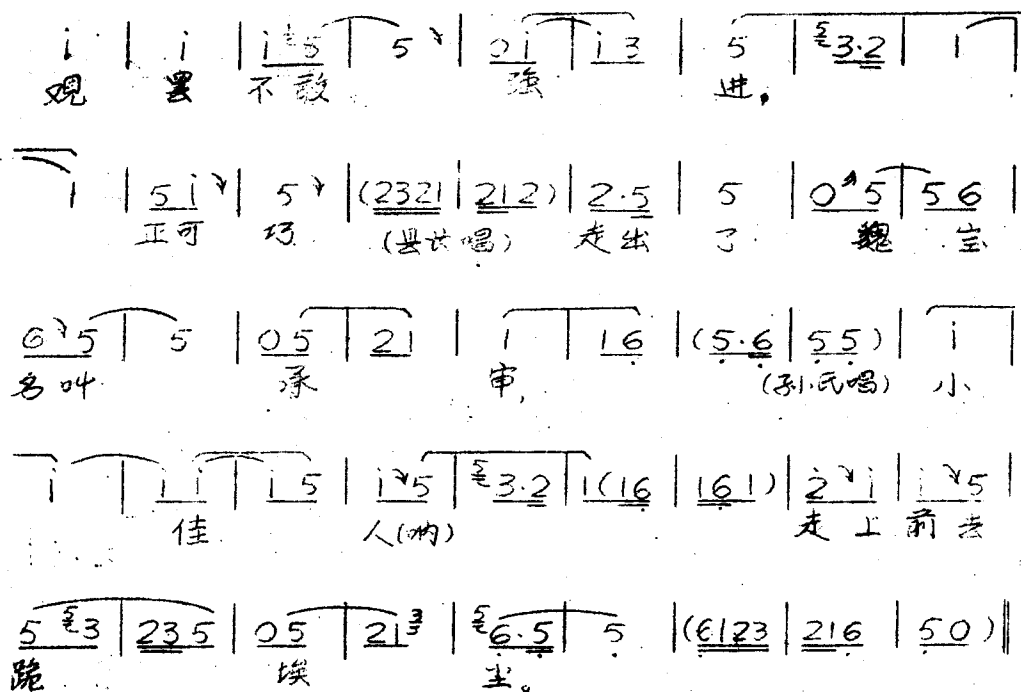 i | i | i 5 | 5 | 0 i | i 3 | 5 | 5 3·2 | 1 |
观 罢 不敢 强 进,
1 | 5 i | 5 | (2321 | 212) | 2·5 | 5 | 0 5 | 5 6
正可 巧 (县官唱) 走出 了 魏 宝
6 5 | 5 | 0 5 | 2 1 | 1 | 1 6 | (5·6 | 5 5) | i |
名叫 承 审, (孙氏唱) 小
i | i i | i 5 | i 5 | 5 3·2 | 1 (1 6 | 1 6 1) | 2 i | i 5 |
佳 人(呐) 走上 前去
5 5 3 | 2 3 5 | 0 5 | 2 1 3 | 5 6·5 | 5 | (6123 | 216 | 5 0) ‖
跪 埃 尘。